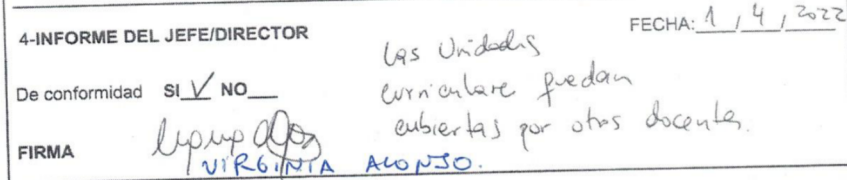 4-INFORME DEL JEFE/DIRECTOR
FECHA: 1 / 4 / 2022
Las Unidades
De conformidad SI V NO
curriculare quedan
cubiertas por otros docentes.
FIRMA
VIRGINIA ALONSO.